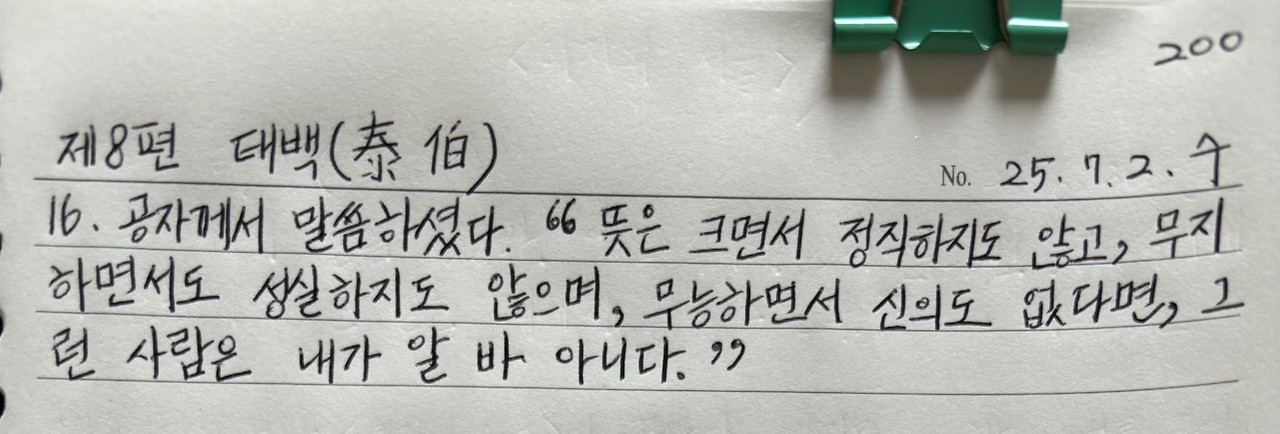 200
제8편 태백(泰伯)
No. 25. 7. 2. 수
16. 공자께서 말씀하셨다. “뜻은 크면서 정직하지도 않고, 무지
하면서도 성실하지도 않으며, 무능하면서 신의도 없다면, 그
런 사람은 내가 알 바 아니다.”